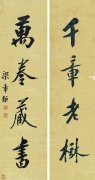 千章老樹
萬卷藏書
梁章鉅